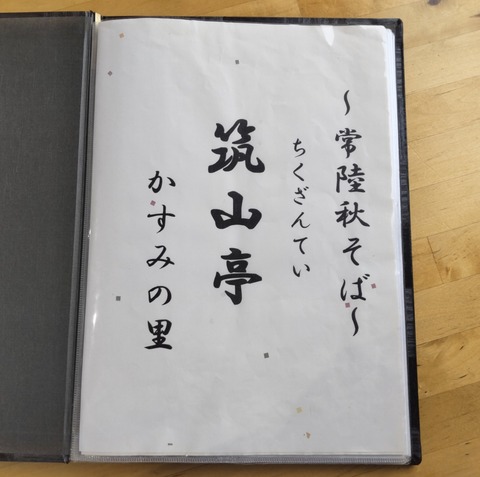 ～常陸秋そば～
ちくざんてい
筑山亭
かすみの里